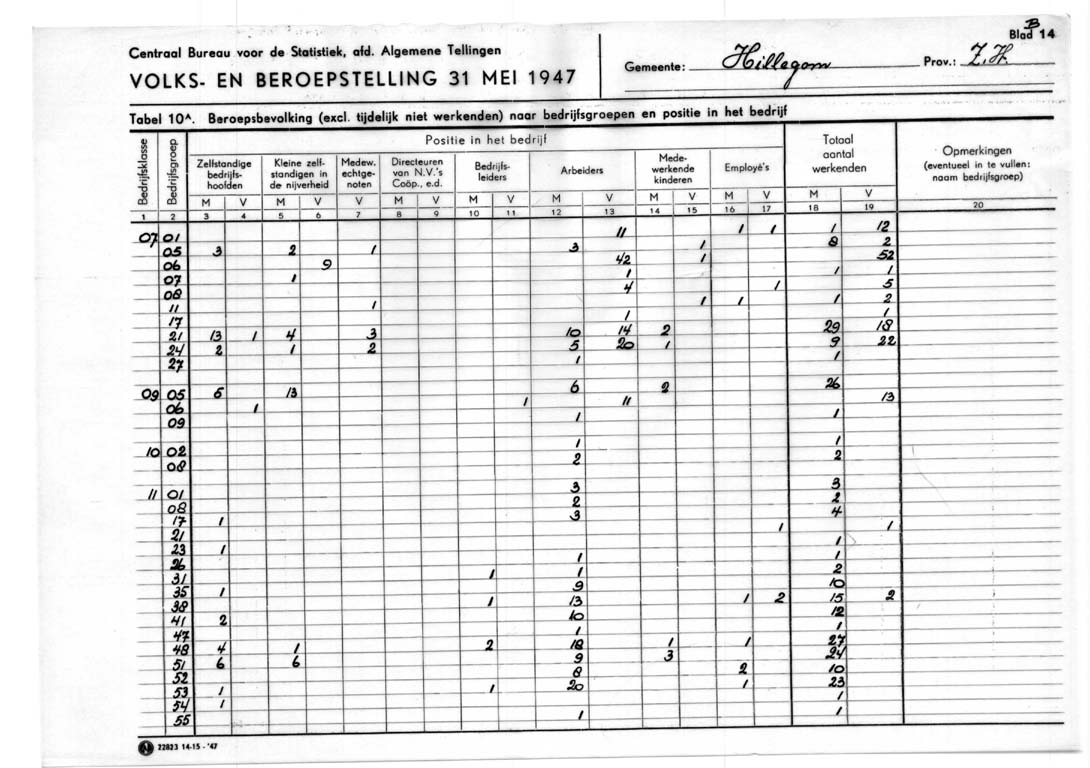 B
Blad 14
Centraal Bureau voor de Statistiek, afd. Algemene Tellingen
VOLKS- EN BEROEPSTELLING 31 MEI 1947
Gemeente: Hillegom Prov.: Z.H.
Tabel 10A. Beroepsbevolking (excl. tijdelijk niet werkenden) naar bedrijfsgroepen en positie in het bedrijf
Bedrijfsklasse
Bedrijfsgroep
Positie in het bedrijf
Zelfstandige bedrijfs- hoofden
Kleine zelf- standigen in de nijverheid
Medew. echtge- noten
Directeuren van N.V.'s Coöp., e.d.
Bedrijfs- leiders
Arbeiders
Mede- werkende kinderen
Employé's
Totaal aantal werkenden
Opmerkingen (eventueel in te vullen: naam bedrijfsgroep)
M V M V V M V M V M V M V M V M V
1 2 3 4 5 6 7 8 9 10 11 12 13 14 15 16 17 18 19 20
07 01 11 1 1 1 12
05 3 2 1 3 1 8 2
06 9 42 1 52
07 1 1 1 1
08 4 1 5
11 1 1 1 1 2
17 1 1
21 13 1 4 3 10 14 2 29 18
24 2 1 2 5 20 1 9 22
27 1 1
09 05 5 13 6 2 26
06 1 1 11 13
09 1 1
10 02 1 1
08 2 2
11 01 3 3
08 2 2
17 1 3 4
21 1 1
23 1 1
26 1 1
31 1 1 2
35 1 9 10
38 1 13 1 2 15 2
41 2 10 12
47 1 1
48 4 1 2 18 1 1 27
51 6 6 9 3 24
52 8 2 10
53 1 1 20 1 23
54 1 1
55 1 1
22823 14-15 - '47